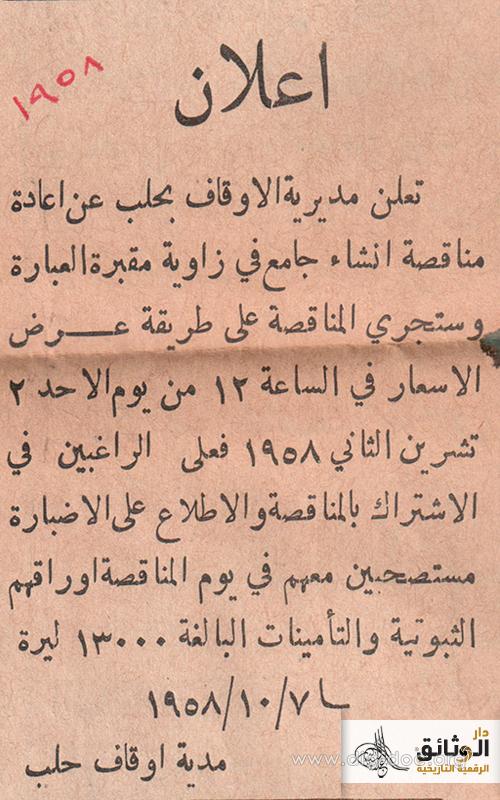 اعلان
١٩٥٨
تعلن مديرية الاوقاف بحلب عن اعادة
مناقصة انشاء جامع في زاوية مقبرة العبارة
وستجري المناقصة على طريقة عـــرض
الاسعار في الساعة ١٢ من يوم الاحد ٢
تشرين الثاني ١٩٥٨ فعلى الراغبين في
الاشتراك بالمناقصة والاطلاع على الاضبارة
مستصحبين معهم في يوم المناقصة اوراقهم
الثبوتية والتأمينات البالغة ١٣٠٠٠ ليرة
١٩٥٨/١٠/٧
مدية اوقاف حلب
دار
الوثائق
الرقمية التاريخية